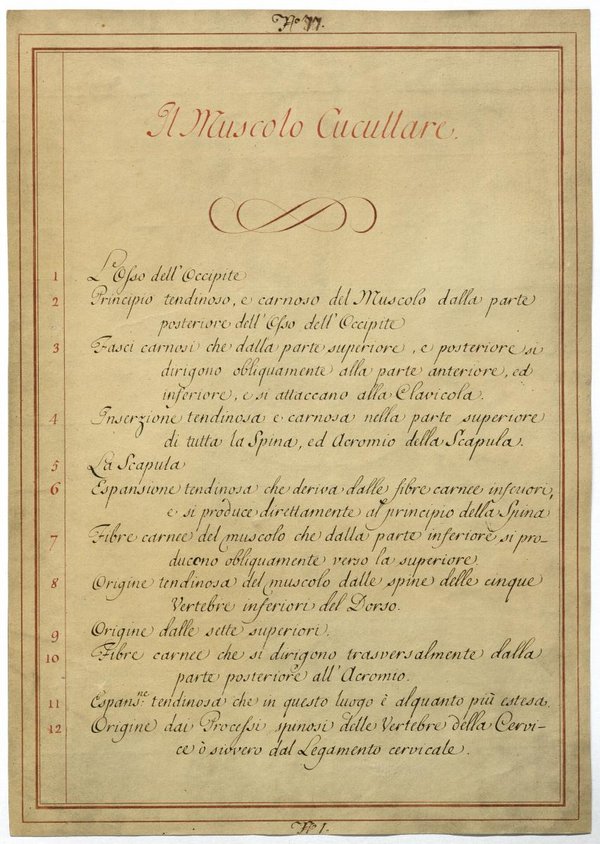 No 77.
Il Muscolo Cucullare.
1 L'Osso dell'Occipite
2 Principio tendinoso, e carnoso del Muscolo dalla parte
posteriore dell'Osso dell'Occipite
3 Fasci carnosi che dalla parte superiore, e posteriore si
dirigono obliquamente alla parte anteriore, ed
inferiore, e si attaccano alla Clavicola.
4 Inserzione tendinosa e carnosa nella parte superiore
di tutta la Spina, ed Acromio della Scapula.
5 La Scapula
6 Espansione tendinosa che deriva dalle fibre carnee inferiori,
e si produce direttamente al principio della Spina
7 Fibre carnee del muscolo che dalla parte inferiore si pro-
ducono obliquamente verso la superiore.
8 Origine tendinosa del muscolo dalle spine delle cinque
Vertebre inferiori del Dorso.
9 Origine dalle sette superiori.
10 Fibre carnee che si dirigono trasversalmente dalla
parte posteriore all'Acromio.
11 Espans.ne tendinosa che in questo luogo è alquanto più estesa.
12 Origine dai Processi spinosi delle Vertebre della Cervi-
ce ò siovero dal Legamento cervicale.
No 1.